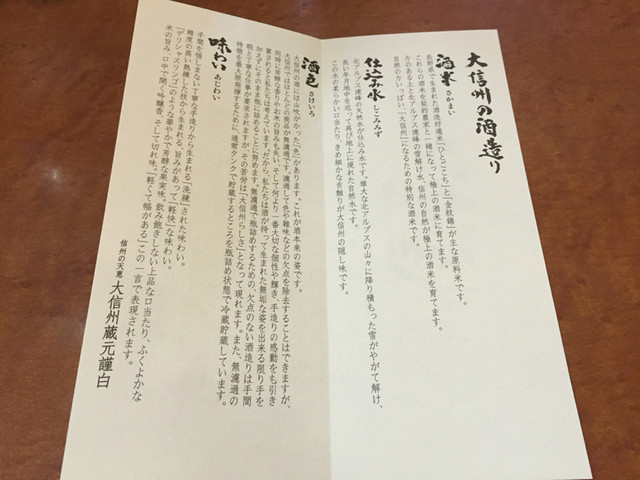 大信州の酒造り
酒米 さかまい
長野県で生まれた酒造好適米「ひとごこち」と「金紋錦」が主な原料米です。
これらの酒米を契約農家と一緒になって極上の酒米に育てます。
力のある土と北アルプス連峰の雪解け水、信州の自然が極上の酒米を育てます。
自然の力いっぱい、「大信州」になるための特別な酒米です。
仕込み水 しこみみず
北アルプス連峰の天然水が仕込み水です。雄大な北アルプスの山々に降り積もった雪がやがて解け、
長い年月地中を巡って再び地上に現れた自然水です。
この水の柔らかい口当たり、きめ細かな舌触りが大信州の隠し味です。
酒色 さけいろ
大信州の酒には山吹がかった「色」があります。これが酒本来の姿です。
大信州ではほとんどの商品が無濾過です。濾過して色や雑味などの欠点を除去することはできますが、
同時に芳醇な香りやお米の旨みも失い、そして何より一番大切な個性や輝き、手造りの感動をも引き
算されると私たちは考えています。だから、私たちは酒が持って生まれた無垢な姿を出来る限り手を
加えずにそのまま瓶に詰めることに努めます。無濾過で瓶詰めするための、欠点のない酒造りは手間
暇と丁寧な仕事が要求されますが、その苦労は「大信州らしさ」となって現れます。また、無濾過の
特徴を最大限発揮するために、通常タンクで貯蔵するところを瓶詰め状態で冷蔵貯蔵しています。
味わい あじわい
手間を惜しまない丁寧な手造りから生まれる「洗練」された味わい。
精度の高い熟練した技から生まれる、旨みがあって「軽快」な味わい。
「デリシャスリンゴ」のような華やかで芳醇な果実味。飲み飽きしない上品な口当たり、ふくよかな
米の旨み、口中で開く吟醸香、そして切れ味。「軽くて幅がある」この一言で表現されます。
信州の天恵 大信州蔵元謹白